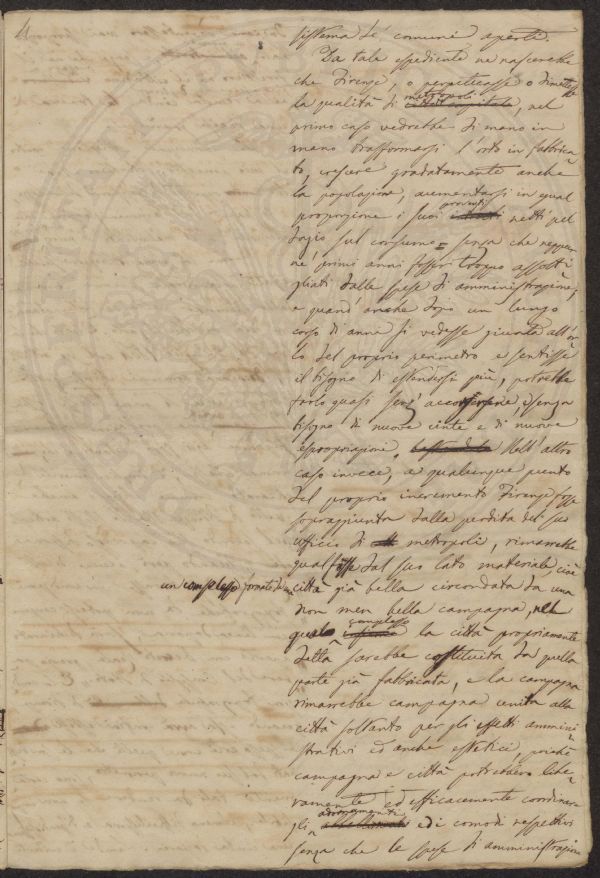 4
sistema de' comuni aperti.
Da tale espediente ne nascerebbe
che Firenze, o perpetuasse o dimettesse
metropoli
la qualità di città capitale, nel
primo caso vedrebbe di mano in
mano trasformarsi l'orto in fabbrica
to, crescere gradatamente anche
la popolazione, aumentarsi in egual
proventi
proporzione i suoi netti pel
dazio sul consumo senza che neppur
ne' primi anni fossero troppo assotti
gliati dalle spese di amministrazione,
e quand'anche dopo un lungo
corso di anni si vedesse giunta all'or
lo del proprio perimetro e sentisse
il bisogno di estendersi più, potrebbe
farlo quasi senza accorgersene, e senza
bisogno di nuove cinte e di nuove
espropriazioni. Nell'altro
caso invece, a qualunque punto
del proprio incremento Firenze fosse
sopraggiunta dalla perdita del suo
ufficio di metropoli, rimarrebbe
qual fosse dal suo lato materiale, cioè
un complesso formato da una
città già bella circondata da una
non men bella campagna, nel
complesso
quale la città propriamente
detta sarebbe costituita da quella
parte già fabbricata, e la campagna
rimarrebbe campagna unita alla
città soltanto per gli effetti ammini
strativi ed anche estetici, poichè
campagna e città potrebbero libe
ramente ed efficacemente coordinare
adornamenti
gli ed i comodi respettivi
senza che le spese di amministrazione